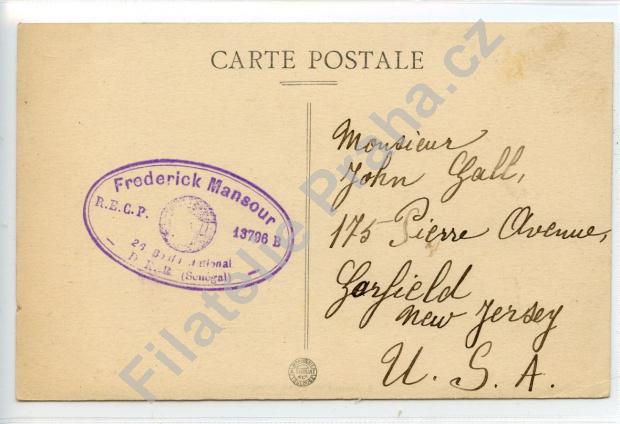 CARTE POSTALE
Frederick Mansour
R.E.C.P.
13796 B
(Senégal)
Monsieur
John Gall,
175 Pierre Avenue,
Garfield
New Jersey
U. S. A.
Filatelie Praha.cz